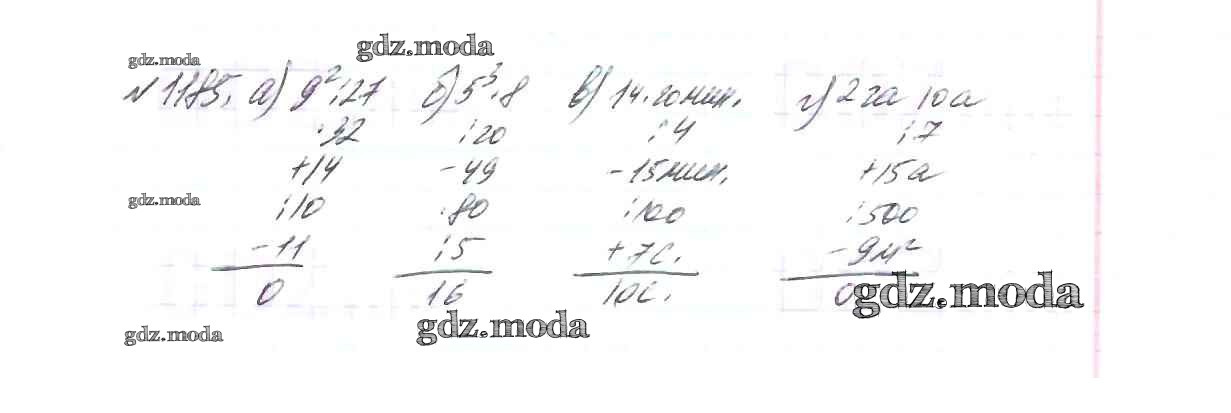 gdz.moda
gdz.moda
№1185. а) 9²:27 б) 5³·8 в) 1ч.20мин. г) 2га 10а
·32 :20 :4 :7
+14 -49 -15мин. +15а
gdz.moda
:10 ·80 :100 :500
-11 :5 +7с. -9м²
0 16 10с. 0
gdz.moda
gdz.moda
gdz.moda